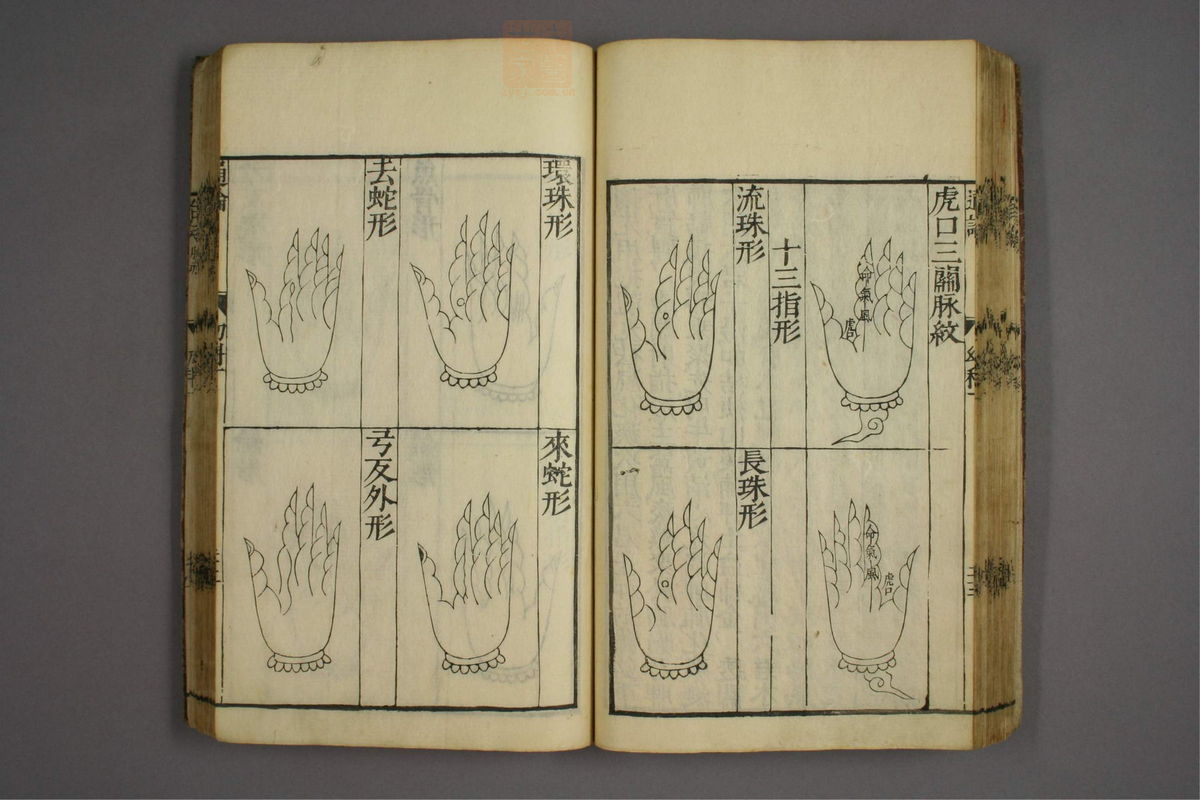 虎口三關脉紋
命氣風
虎口
命氣風
虎口
十三指形
流珠形
長珠形
環珠形
來蛇形
去蛇形
弓反外形